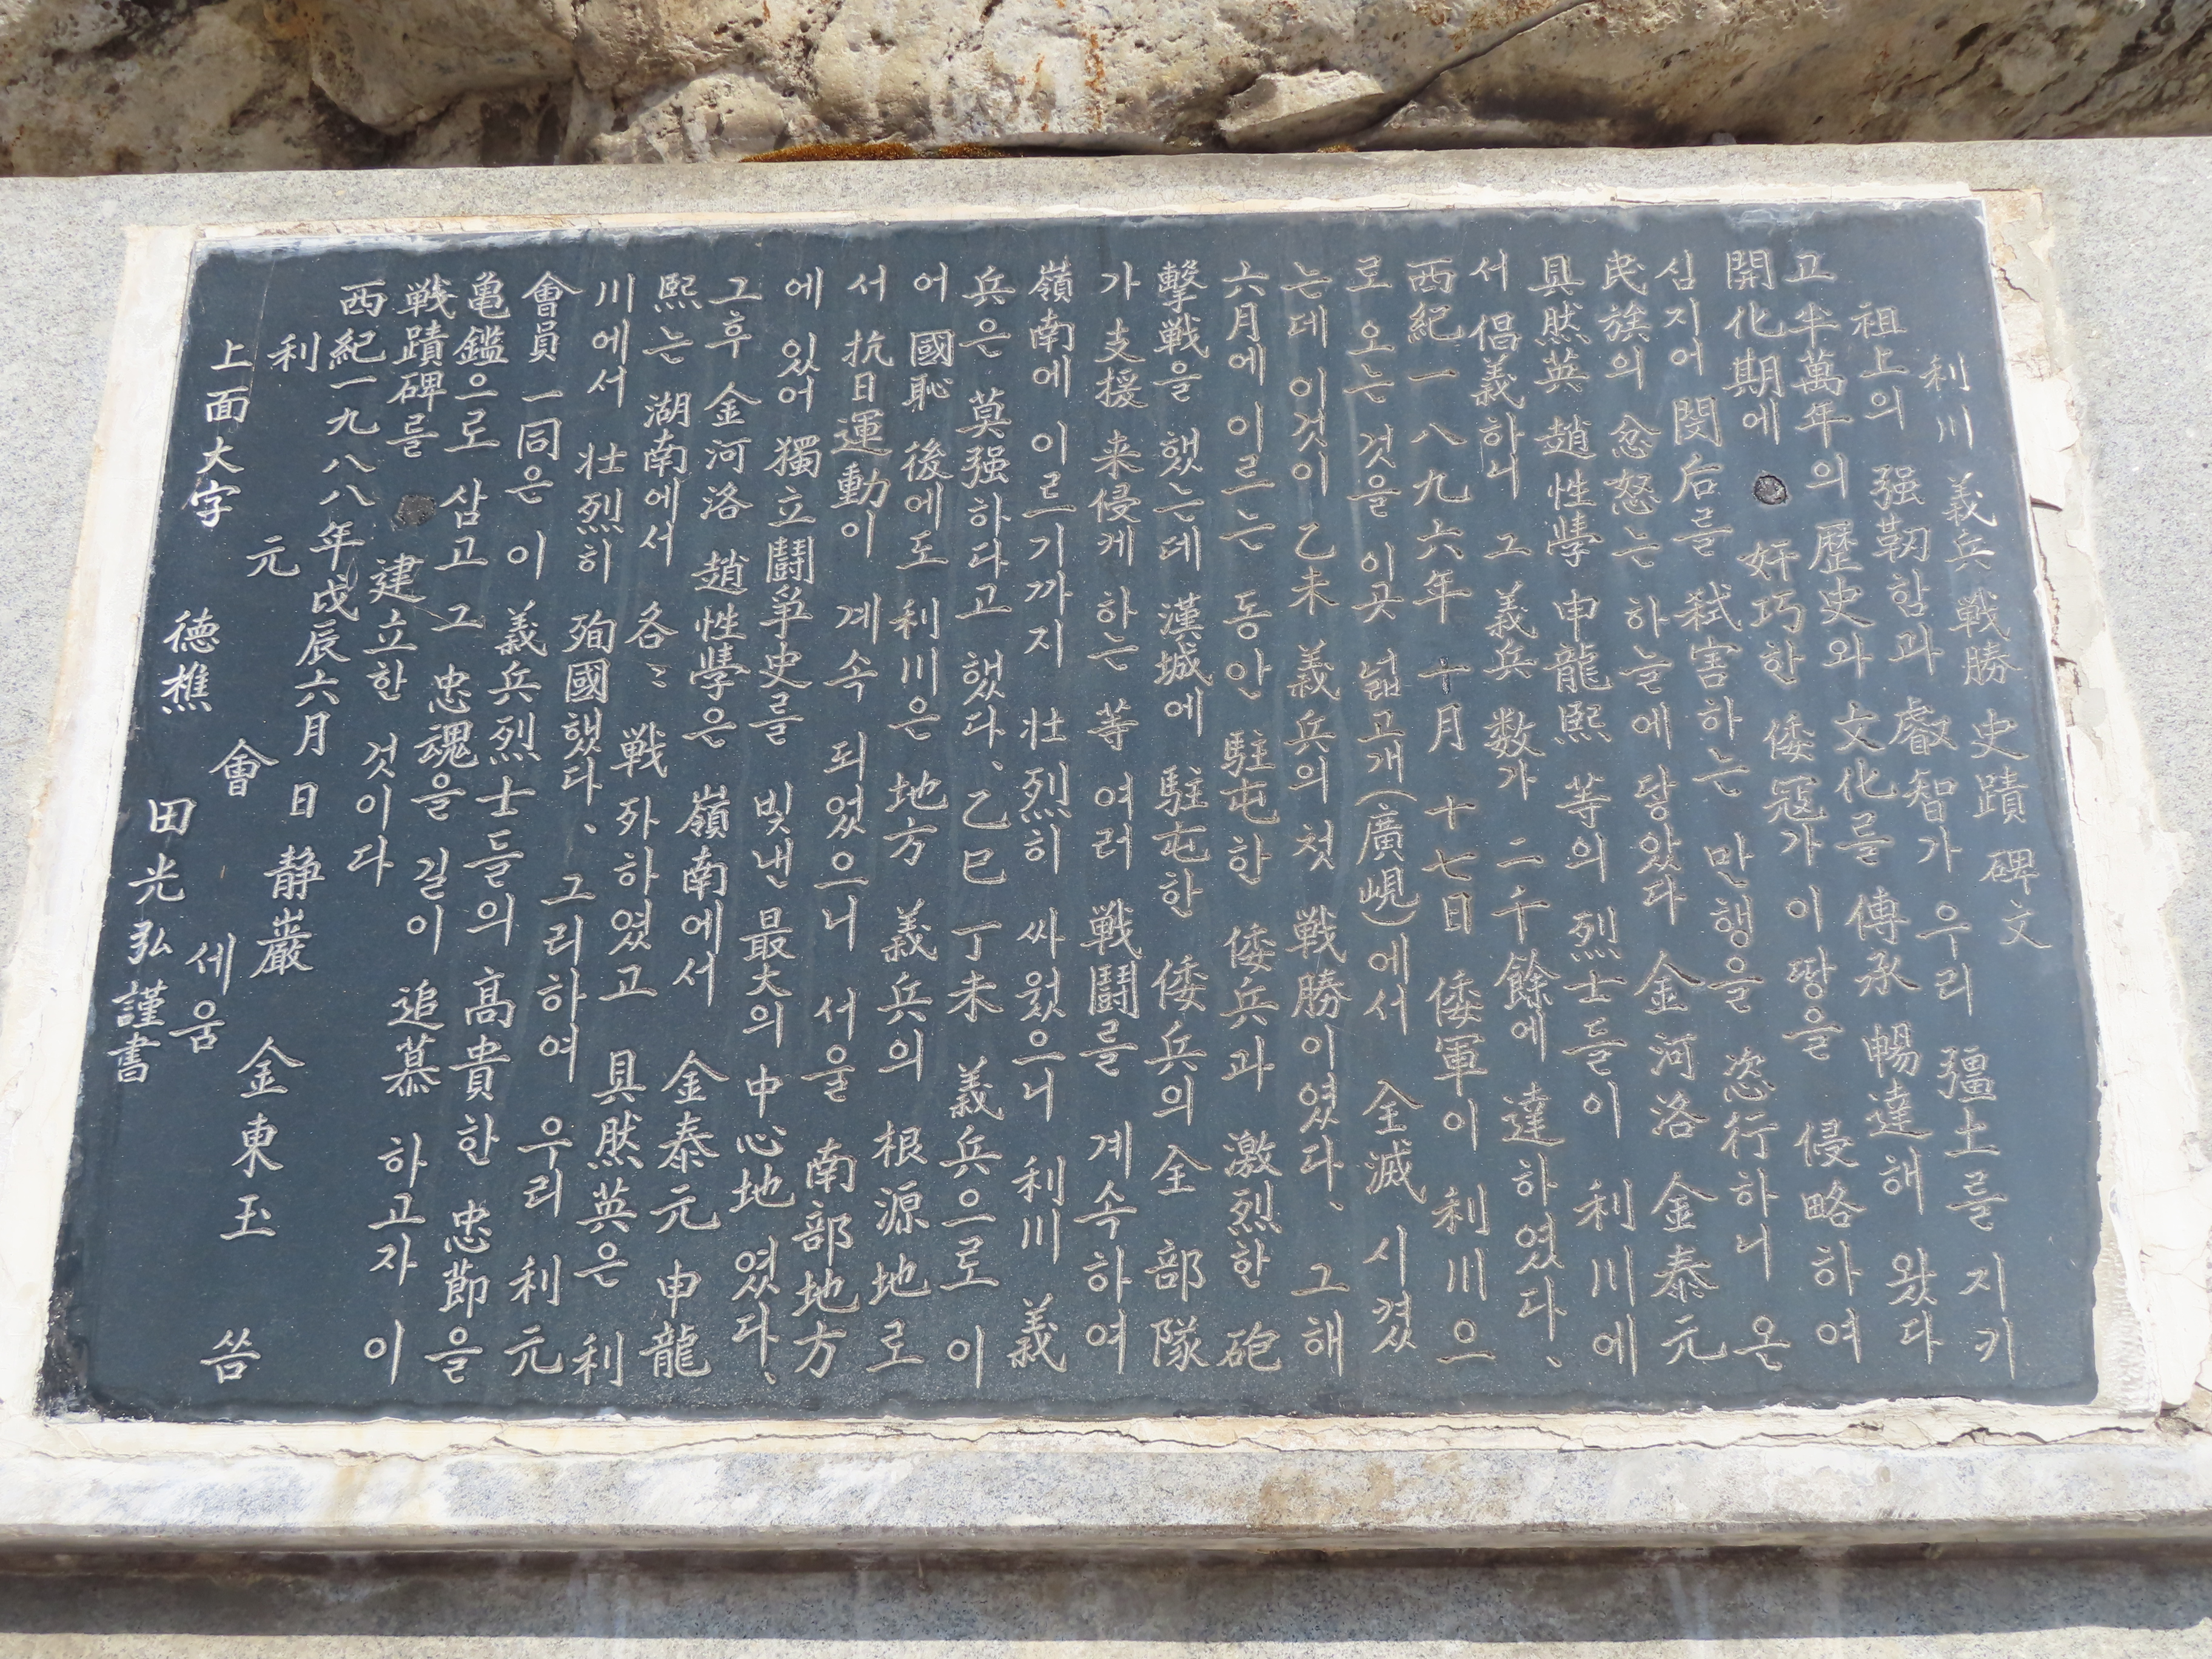 利川 義兵 戦勝 史蹟 碑文
祖上의 强靭함과 叡智가 우리 疆土를 지키
고 半萬年의 歴史와 文化를 傳承 暢達해 왔다
開化期에 奸巧한 倭冠가 이땅을 侵略하여
심지어 閔后를 弑害하는 만행을 恣行하니 온
民族의 忿怒는 하늘에 닿았다 金河洛 金泰元
具然英 趙性學 申龍熙 等의 烈士들이 利川에
서 倡義하니 그 義兵 数가 二千餘에 達하였다、
西紀一八九六年 十月 十七日 倭軍이 利川으
로 오는 것을 이곳 넓고개(廣峴)에서 全滅 시켰
는데 이것이 乙未 義兵의 첫 戦勝이였다、 그해
六月에 이르는 동안 駐屯한 倭兵과 激烈한 砲
擊戦을 했는데 漢城에 駐屯한 倭兵의 全 部隊
가 支援 来侵케 하는 等 여러 戦鬪를 계속하여
嶺南에 이르기까지 壮烈히 싸웠으니 利川 義
兵은 莫强하다고 했다、乙巳 丁未 義兵으로 이
어 國恥 後에도 利川은 地方 義兵의 根源地로
서 抗日運動이 계속 되었으니 서울 南部地方
에 있어 獨立鬪爭史를 빗낸 最大의 中心地 였다、
그후 金河洛 趙性學은 嶺南에서 金泰元 申龍
熙는 湖南에서 各各 戦死하였고 具然英은 利
川에서 壮烈히 殉國했다、그리하여 우리 利元
會員 一同은 이 義兵烈士들의 高貴한 忠節을
亀鑑으로 삼고 그 忠魂을 길이 追慕 하고자 이
戦蹟碑를 建立한 것이다
西紀一九八八年戊辰六月 日 静巖 金東玉 씀
利 元 會 세움
上面大字 德樵 田光弘 謹書